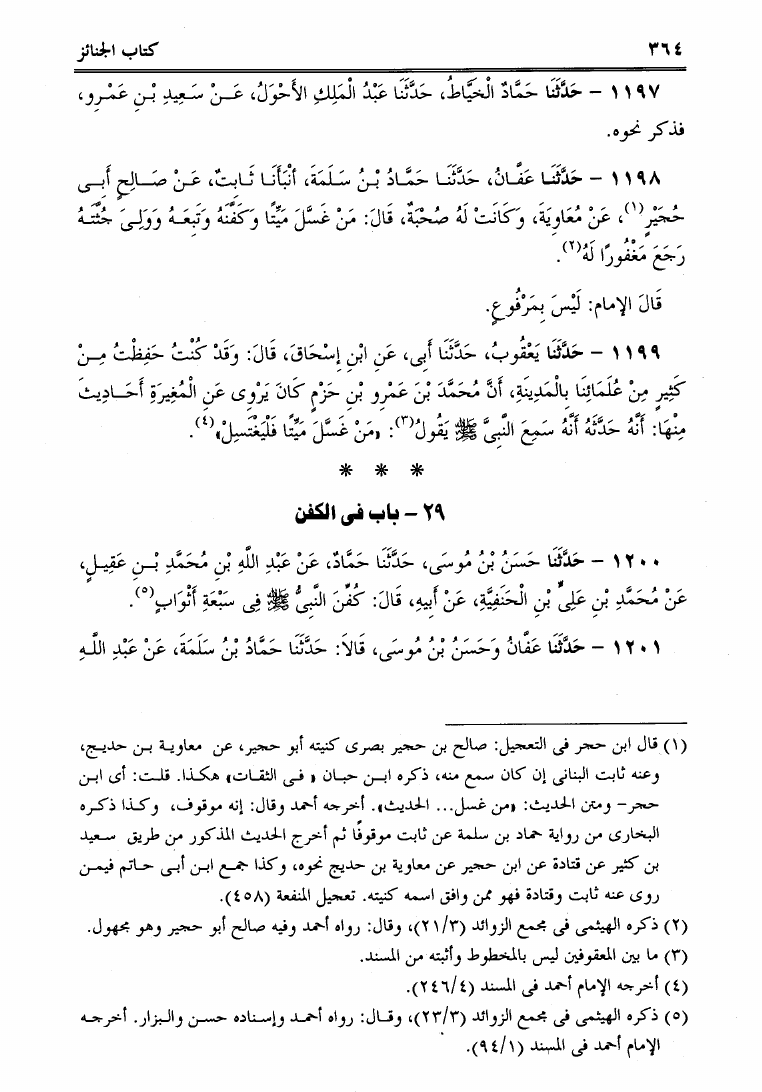 ٣٦٤
كتاب الجنائز
١١٩٧ – حَدَّثَنَا حَمَّادٌ الْخَيَّاطُ، حَدَّثَنَا عَبْدُ الْمَلِكِ الأَحْوَلُ، عَــنْ سَـعِيدِ بْـنِ عَمْـرٍو،
فذكر نحوه.
١١٩٨ – حَدَّثَنَـا عَفَّـانُ، حَدَّثَنَـا حَمَّـادُ بْـنُ سَـلَمَةَ، أَنْبَأَنَـا ثَـابِتٌ، عَـنْ صَـالِحٍ أَبِـى
حُجَيْرٍ(١)، عَنْ مُعَاوِيَةَ، وَكَانَتْ لَهُ صُحْبَةٌ، قَالَ: مَنْ غَسَّلَ مَيِّتًا وَكَفَّنَهُ وَتَبِعَـهُ وَوَلِـىَ جُثَّتَـهُ
رَجَعَ مَغْفُورًا لَهُ(٢).
قَالَ الإمام: لَيْسَ بِمَرْفُوعٍ.
١١٩٩ – حَدَّثَنَا يَعْقُوبُ، حَدَّثَنَا أَبِى، عَنِ ابْنِ إِسْحَاقَ، قَالَ: وَقَدْ كُنْتُ حَفِظْتُ مِـنْ
كَثِيرٍ مِنْ عُلَمَائِنَا بِالْمَدِينَةِ، أَنَّ مُحَمَّدَ بْنَ عَمْرِو بْنِ حَزْمٍ كَانَ يَرْوِى عَنِ الْمُغِيرَةِ أَحَـادِيثَ
مِنْهَا: أَنَّهُ حَدَّثَهُ أَنَّهُ سَمِعَ النَّبِىَّ ﷺ يَقُولُ(٣): «مَنْ غَسَّلَ مَيِّتًا فَلْيَغْتَسِلْ»(٤).
* * *
٢٩ – باب فى الكفن
١٢٠٠ – حَدَّثَنَا حَسَنُ بْنُ مُوسَى، حَدَّثَنَا حَمَّادٌ، عَنْ عَبْدِ اللَّهِ بْنِ مُحَمَّدِ بْـنِ عَقِيـلٍ،
عَنْ مُحَمَّدِ بْنِ عَلِىِّ بْنِ الْحَنَفِيَّةِ، عَنْ أَبِيهِ، قَالَ: كُفِّنَ النَّبِىُّ ﷺ فِى سَبْعَةِ أَثْوَابٍ(٥).
١٢٠١ – حَدَّثَنَا عَفَّانُ وَحَسَنُ بْنُ مُوسَى، قَالاَ: حَدَّثَنَا حَمَّادُ بْنُ سَلَمَةَ، عَنْ عَبْدِ اللَّـهِ
(١) قال ابن حجر فى التعجيل: صالح بن حجير بصرى كنيته أبو حجير، عن معاويـة بـن حديـج،
وعنه ثابت البنانى إن كان سمع منه، ذكره ابـن حبـان « فـى الثقـات» هكـذا. قلـت: أى ابـن
حجر- ومتن الحديث: «من غسل... الحديث». أخرجه أحمد وقال: إنه موقوف، وكـذا ذكـره
البخارى من رواية حماد بن سلمة عن ثابت موقوفًا ثم أخرج الحديث المذكور من طريق سـعيد
بن كثير عن قتادة عن ابن حجير عن معاوية بن حديج نحوه، وكذا جمـع ابـن أبـى حـاتم فيمـن
روى عنه ثابت وقتادة فهو ممن وافق اسمه كنيته. تعجيل المنفعة (٤٥٨).
(٢) ذكره الهيثمى فى مجمع الزوائد (٢١/٣)، وقال: رواه أحمد وفيه صالح أبو حجير وهو مجهول.
(٣) ما بين المعقوفين ليس بالمخطوط وأثبته من المسند.
(٤) أخرجه الإمام أحمد فى المسند (٢٤٦/٤).
(٥) ذكره الهيثمى فى مجمع الزوائد (٢٣/٣)، وقـال: رواه أحمـد وإسـناده حسـن والـبزار. أخرجـه
الإمام أحمد فى المسند (٩٤/١).